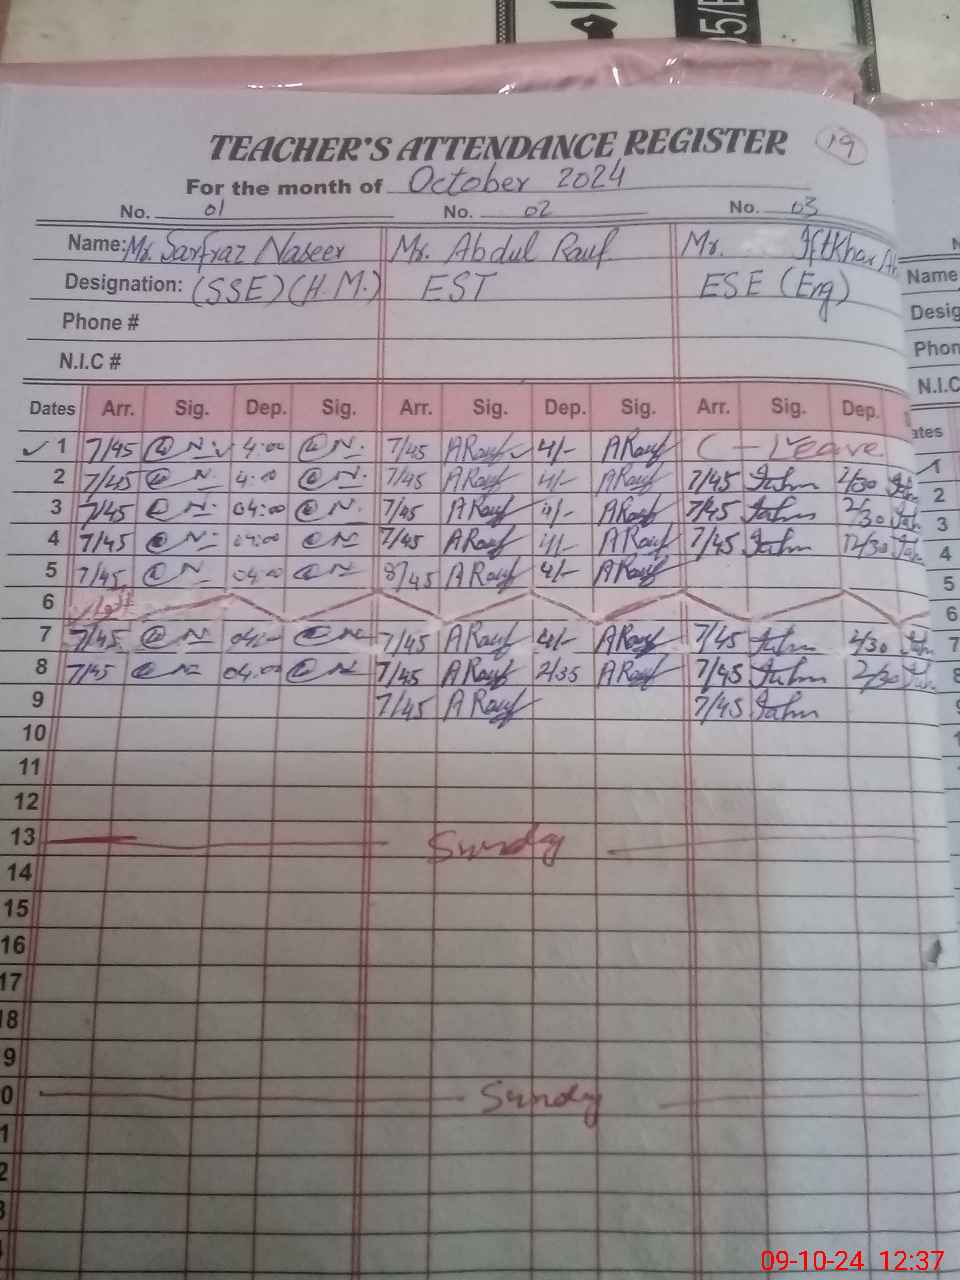 5/E
TEACHER'S ATTENDANCE REGISTER 19
For the month of October 2024
No. 01 No. 02 No. 03
Name: Mr. Sarfraz Naseer Mr. Abdul Rauf Mr. Iftkhar
Designation: (SSE) (H.M.) EST ESE (Eng)
Phone #
N.I.C #
Dates Arr. Sig. Dep. Sig. Arr. Sig. Dep. Sig. Arr. Sig. Dep.
1 7/45 @ N. 4:00 @ N. 7/45 ARauf 4/- ARauf C - Leave
2 7/45 @ N. 4:00 @ N. 7/45 ARauf 4/- ARauf 7/45 2/30
3 7/45 @ N. 04:00 @ N. 7/45 ARauf 4/- ARauf 7/45 2/30
4 7/45 @ N. 04:00 @ N 7/45 ARauf 4/- ARauf 7/45 12/30
5 7/45 @ N 04:00 @ N 8/45 ARauf 4/- ARauf
6
7 7/45 @ N 04:00 @ N 7/45 ARauf 4/- ARauf 7/45 2/30
8 7/45 @ N 04:00 @ N 7/45 ARauf 2/35 ARauf 7/45 2/30
9 7/45 ARauf 7/45
10
11
12
13 Sunday
14
15
16
17
18
9
0 Sunday
1
2
3
Name
Desig
Phon
N.I.C
ates
1
2
3
4
5
6
7
8
09-10-24 12:37